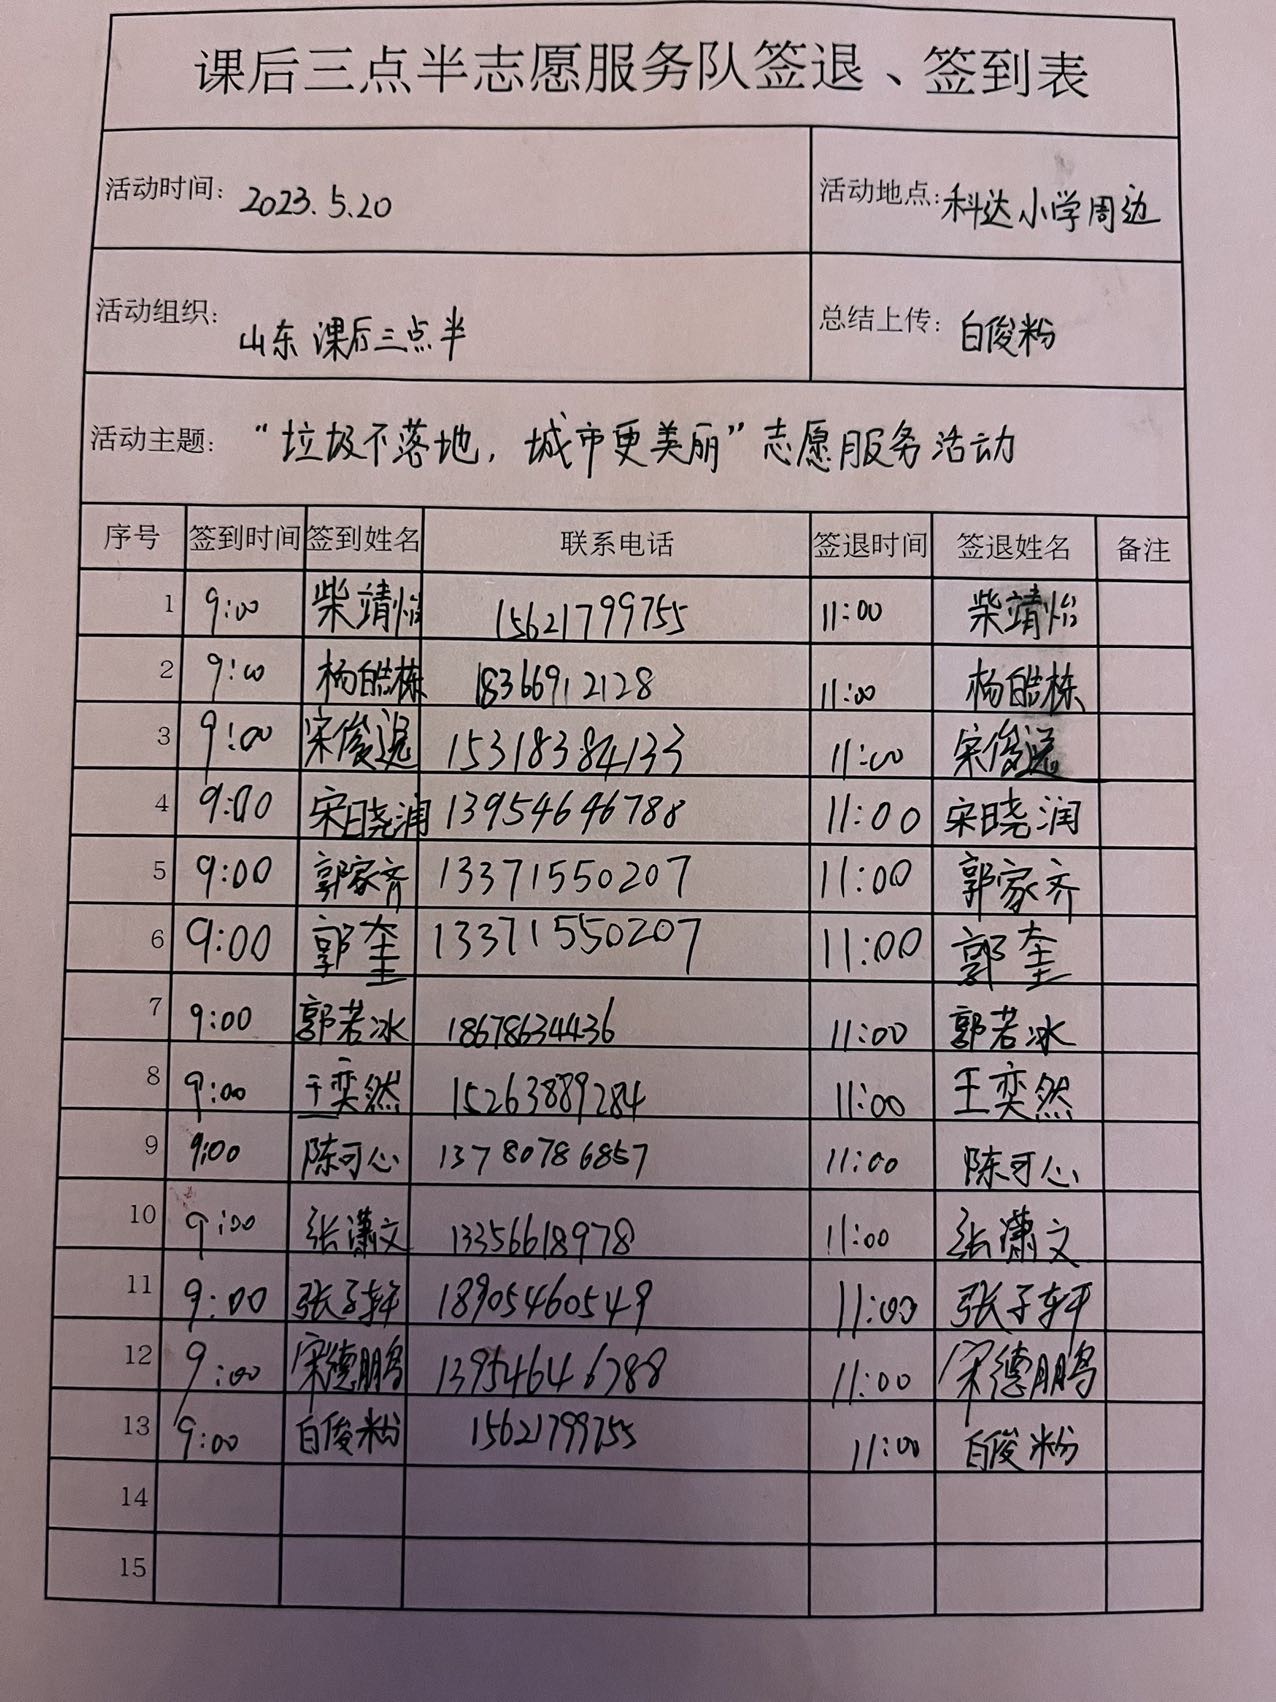 课后三点半志愿服务队签退、签到表
活动时间: 2023.5.20 活动地点: 科达小学周边
活动组织: 山东课后三点半 总结上传: 白俊粉
活动主题: “垃圾不落地，城市更美丽”志愿服务活动
序号 签到时间 签到姓名 联系电话 签退时间 签退姓名 备注
1 9:00 柴靖怡 15621799755 11:00 柴靖怡
2 9:00 杨皓栋 18366912128 11:00 杨皓栋
3 9:00 宋俊逸 15318384133 11:00 宋俊逸
4 9:00 宋晓润 13954646788 11:00 宋晓润
5 9:00 郭家齐 13371550207 11:00 郭家齐
6 9:00 郭奎 13371550207 11:00 郭奎
7 9:00 郭若冰 18678634436 11:00 郭若冰
8 9:00 王奕然 15263889284 11:00 王奕然
9 9:00 陈可心 13780786857 11:00 陈可心
10 9:00 张潇文 13356618978 11:00 张潇文
11 9:00 张子轩 18905460549 11:00 张子轩
12 9:00 宋德鹏 13954646788 11:00 宋德鹏
13 9:00 白俊粉 15621799755 11:00 白俊粉
14
15